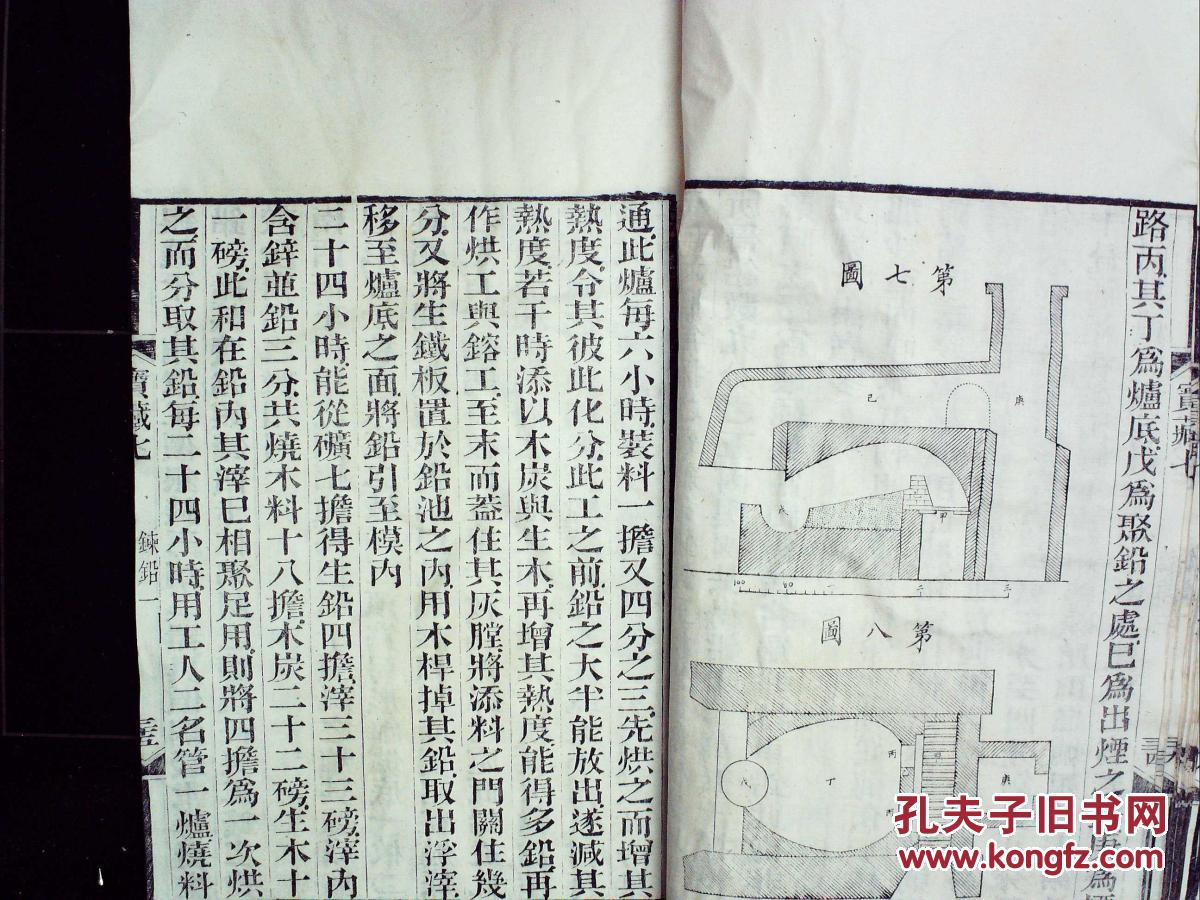 路丙其丁為爐底戊為聚鉛之處己為出煙之
第七圖
己
庚
甲
第八圖
戊
丁
丙
庚
通此爐每六小時裝料一擔又四分之三先烘之而增其
熱度令其彼此化分此工之前鉛之大半能放出遂減其
熱度若干時添以木炭與生木再增其熱度能得多鉛再
作烘工與鎔工至末而蓋住其灰膛將添料之門關住幾
分又將生鐵板置於鉛池之內用木桿掉其鉛取出浮滓
移至爐底之面將鉛引至模內
二十四小時能從礦七擔得生鉛四擔滓三十三磅滓內
含鋅並鉛三分共燒木料十八擔木炭二十二磅生木十
一磅此和在鉛內其滓已相聚足用則將四擔為一次烘
之而分取其鉛每二十四小時用工人二名管一爐燒料
寶藏七
鍊鉛一
寶藏
孔夫子旧书网
www.kongfz.com